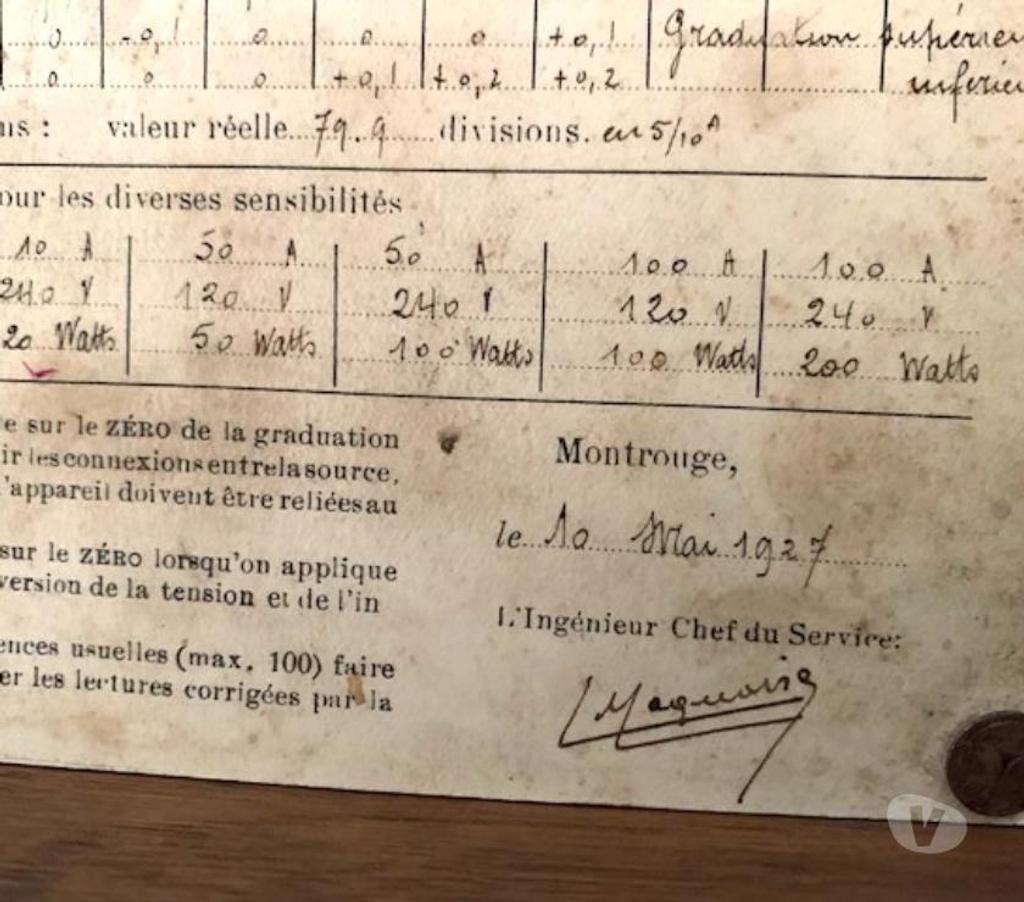 0 -0,1 0 0 0 +0,1 Graduation supérieu
0 0 0 +0,1 +0,2 +0,2 inférieu
ns : valeur réelle 79.9 divisions. en 5/10 A
our les diverses sensibilités
10 A 50 A 50 A 100 A 100 A
240 V 120 V 240 V 120 V 240 V
20 Watts 50 Watts 100 Watts 100 Watts 200 Watts
e sur le ZÉRO de la graduation
ir les connexions entre la source,
l'appareil doivent être reliées au
sur le ZÉRO lorsqu'on applique
version de la tension et de l'in
ences usuelles (max. 100) faire
er les lectures corrigées par la
Montrouge,
le 10 Mai 1927
L'Ingénieur Chef du Service:
V